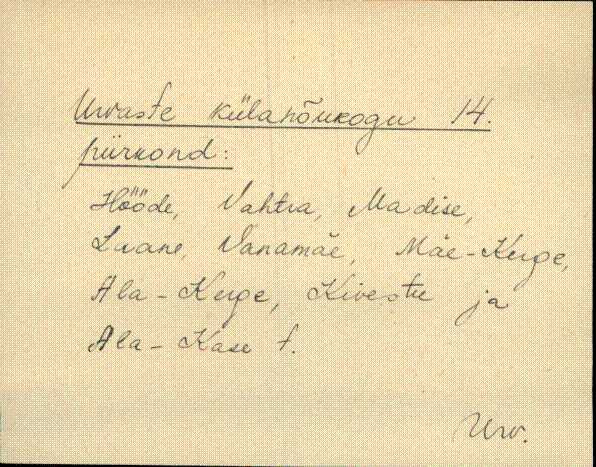 Urvaste külanõukogu 14.
piirkond:
Hööde, Vahtra, Madise,
Luane, Vanamäe, Mäe-Kerge,
Ala-Kerge, Kivestu ja
Ala-Kase t.
Urv.